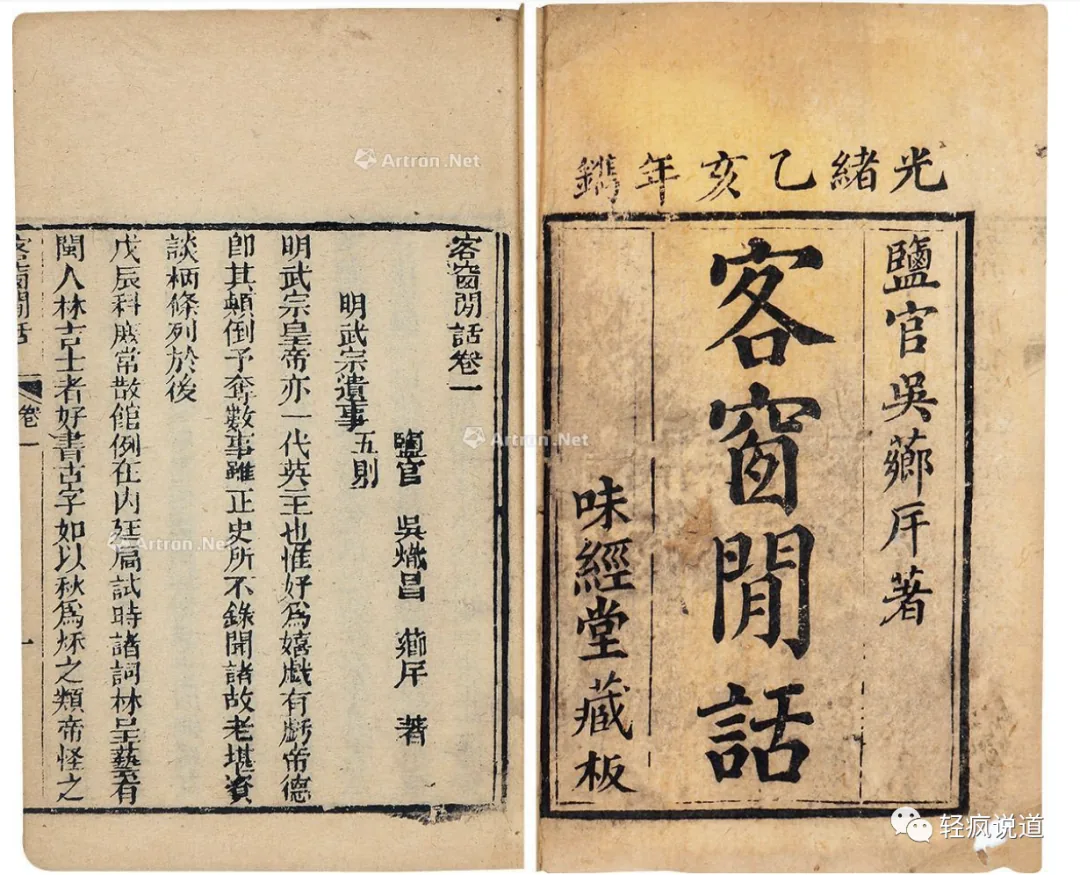 光緒乙亥年鐫
鹽官吳薌厈著
客窗閒話
味經堂藏板
客窗閒話卷一
鹽官 吳熾昌 薌厈 著
明武宗遺事五則
明武宗皇帝亦一代英主也惟好爲嬉戲有虧帝德
卽其顛倒予奪數事雖正史所不錄聞諸故老堪資
談柄條列於後
戊辰科庶常散館例在內廷扃試時諸詞林呈藝有
閩人林吉士者好書古字如以秋爲秌之類帝怪之
客窗閒話 卷一 一
Artron.Net
Artron.Net
Artron.Net
轻疯说道